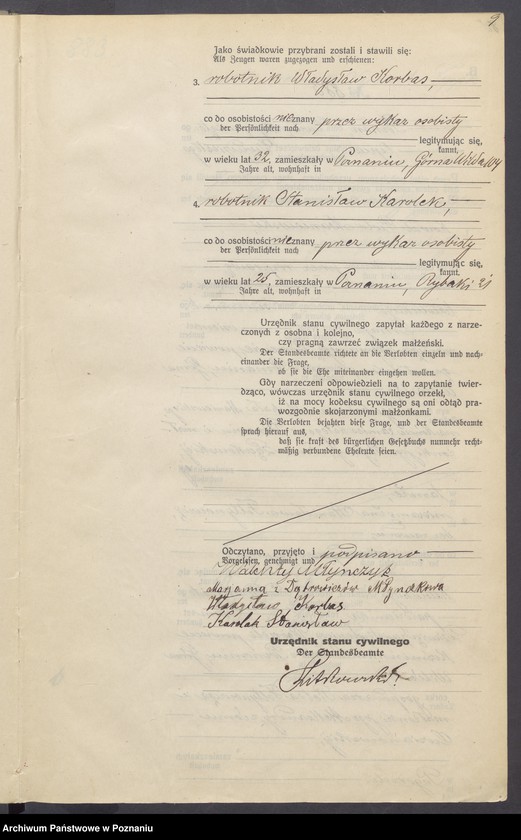 9
Jako świadkowie przybrani zostali i stawili się:
Als Zeugen waren zugezogen und erschienen:
3. robotnik Władysław Korbas,
co do osobistości nieznany przez wykaz osobisty
der Persönlichkeit nach
legitymując się,
kannt,
w wieku lat 32, zamieszkały w Poznaniu, Górna Wilda 104
Jahre alt, wohnhaft in
4. robotnik Stanisław Karolek,
co do osobistości nieznany przez wykaz osobisty
der Persönlichkeit nach
legitymując się,
kannt.
w wieku lat 25, zamieszkały w Poznaniu, Rybaki 21
Jahre alt, wohnhaft in
Urzędnik stanu cywilnego zapytał każdego z narze-
czonych z osobna i kolejno,
czy pragną zawrzeć związek małżeński.
Der Standesbeamte richtete an die Verlobten einzeln und nach-
einander die Frage,
ob sie die Ehe miteinander eingehen wollen.
Gdy narzeczeni odpowiedzieli na to zapytanie twier-
dząco, wówczas urzędnik stanu cywilnego orzekł,
iż na mocy kodeksu cywilnego są oni odtąd pra-
wozgodnie skojarzonymi małżonkami.
Die Verlobten bejahten diese Frage, und der Standesbeamte
sprach hierauf aus,
daß sie kraft des bürgerlichen Gesetzbuchs nunmehr recht-
mäßig verbundene Eheleute seien.
Odczytano, przyjęto i podpisano.
Vorgelesen, genehmigt und
Walenty Młynczyz
Marjanna z Młynczkowa
Władysław Korbas
Karolak Stanisław
Urzędnik stanu cywilnego
Der Standesbeamte
Archiwum Państwowe w Poznaniu